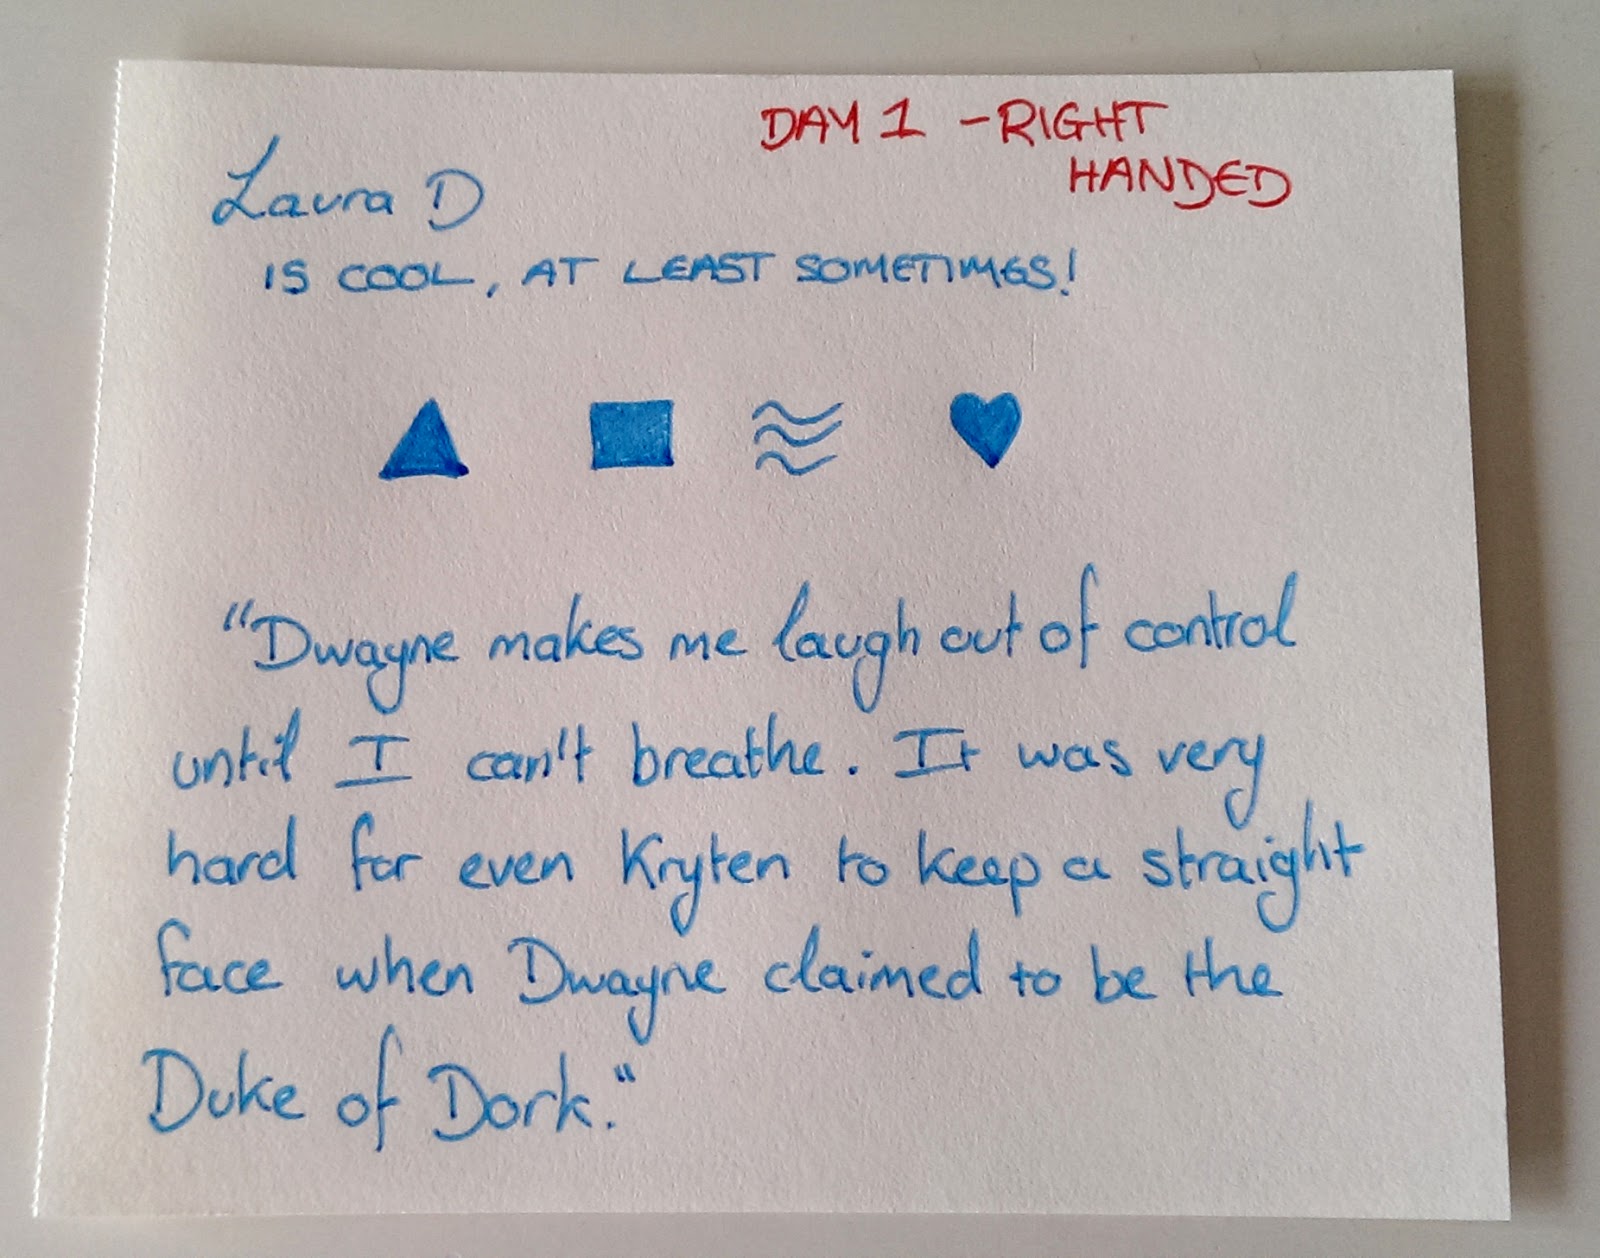 DAY 1 - RIGHT
HANDED
Laura D
IS COOL, AT LEAST SOMETIMES!
"Dwayne makes me laugh out of control
until I can't breathe. It was very
hard for even Kryten to keep a straight
face when Dwayne claimed to be the
Duke of Dork."